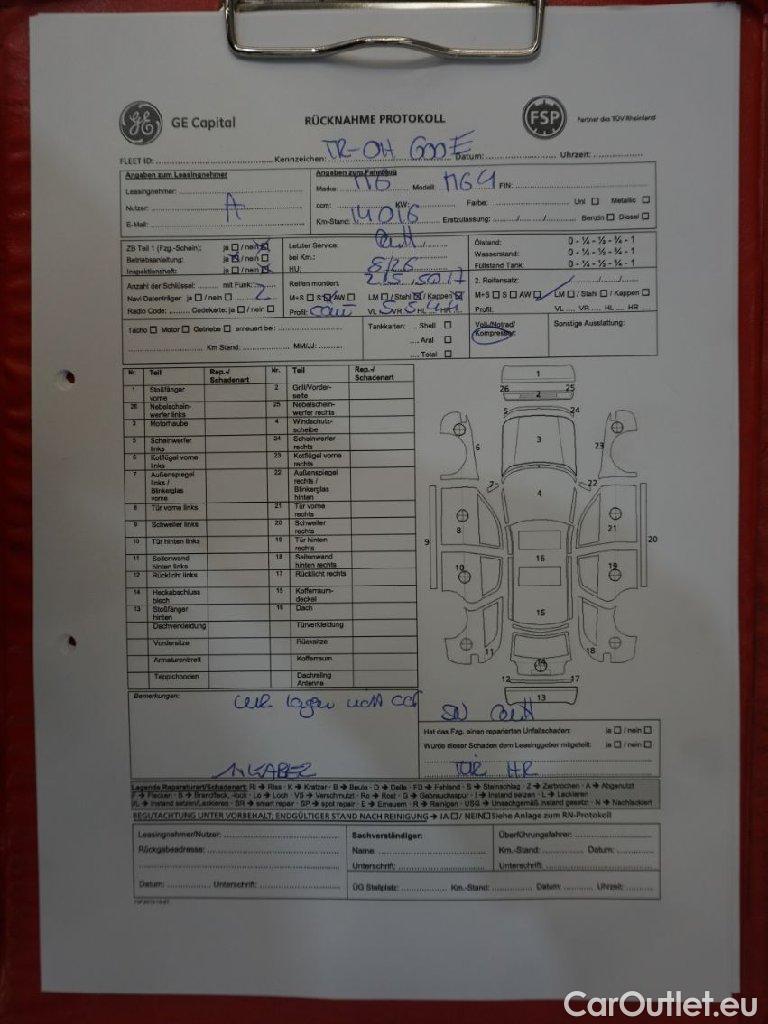 GE Capital
RÜCKNAHME PROTOKOLL
FSP
Partner des TÜV Rheinland
FLEET ID: Kennzeichen: TR-OH 600E Datum: Uhrzeit:
Angaben zum Leasingnehmer
Leasingnehmer:
Nutzer: A
E-Mail:
Angaben zum Fahrzeug
Marke: MG Modell: MG4 FIN:
ccm: KW: Farbe: Uni ☐ Metallic ☐
Km-Stand: 14016 Erstzulassung: Benzin ☐ Diesel ☐
ZB Teil 1 (Fzg.-Schein): ja ☐ / nein ☒
Betriebsanleitung: ja ☒ / nein ☐
Inspektionsheft: ja ☐ / nein ☒
Letzter Service:
bei Km.:
HU: 5/26
Ölstand: 0 - ¼ - ½ - ¾ - 1
Wasserstand: 0 - ¼ - ½ - ¾ - 1
Füllstand Tank: 0 - ¼ - ½ - ¾ - 1
Anzahl der Schlüssel: mit Funk: 2
Navi Datenträger ja ☐ / nein ☐
Radio Code: Codekarte: ja ☐ / nein ☐
Reifen montiert: 215 50 17
M+S ☐ S ☒ AW ☐ LM ☐ / Stahl ☒ / Kappen ☒
Profil: VL 5 VR 5 HL 4 HR 4
2. Reifensatz:
M+S ☐ S ☐ AW ☐ LM ☐ / Stahl ☐ / Kappen ☐
Profil: VL VR HL HR
Tacho ☐ Motor ☐ Getriebe ☐ erneuert bei:
Km Stand: MM/JJ:
Tankkarten: Shell ☐
Aral ☐
Total ☐
Voll-/Notrad/
Kompressor:
Sonstige Ausstattung:
Nr. Teil Rep.-/ Schadenart Nr. Teil Rep.-/ Schadenart
1 Stoßfänger vorne 2 Grill/Vorderseite
26 Nebelscheinwerfer links 25 Nebelscheinwerfer rechts
3 Motorhaube 4 Windschutzscheibe
5 Scheinwerfer links 24 Scheinwerfer rechts
6 Kotflügel vorne links 23 Kotflügel vorne rechts
7 Außenspiegel links / Blinkerglas vorne 22 Außenspiegel rechts / Blinkerglas hinten
8 Tür vorne links 21 Tür vorne rechts
9 Schweller links 20 Schweller rechts
10 Tür hinten links 19 Tür hinten rechts
11 Seitenwand hinten links 18 Seitenwand hinten rechts
12 Rücklicht links 17 Rücklicht rechts
14 Heckabschlussblech 15 Kofferraumdeckel
13 Stoßfänger hinten 16 Dach
Dachverkleidung Türverkleidung
Vordersitze Rücksitze
Armaturenbrett Kofferraum
Teppichboden Dachreling Antenne
1
26 2 25
5 24
6 3 23
7 22
4
8 21
9 20
16
10 19
15
11 18
14
12 17
13
Bemerkungen:
TÜR HR
Hat das Fzg. einen reparierten Unfallschaden: ja ☐ / nein ☐
Wurde dieser Schaden dem Leasinggeber mitgeteilt: ja ☐ / nein ☐
Legende Reparaturart/Schadenart: Ri → Riss - K → Kratzer - B → Beule - D → Delle - FD → Fehlend - S → Steinschlag - Z → Zerbrochen - A → Abgenutzt
BEGUTACHTUNG UNTER VORBEHALT, ENDGÜLTIGER STAND NACH REINIGUNG → JA ☐ / NEIN ☐ Siehe Anlage zum RN-Protokoll
Leasingnehmer/Nutzer:
Rückgabeadresse:
Datum: Unterschrift:
Sachverständiger:
Name
Unterschrift:
Überführungsfahrer:
Km.-Stand: Datum:
Unterschrift:
ÜG Stellplatz: Km.-Stand: Datum: Uhrzeit:
CarOutlet.eu